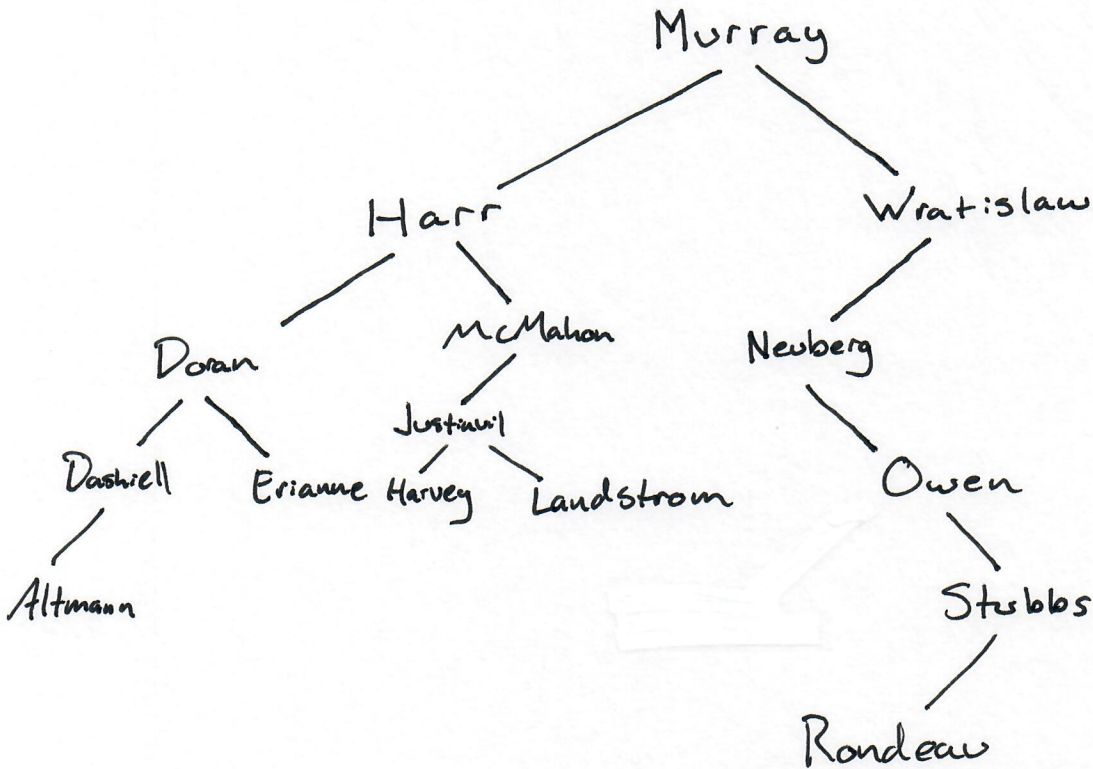 Murray
Harr Wratislaw
McMahon Neuberg
Doran
Justinvil
Dashiell Erianne Harvey Landstrom Owen
Altmann Stubbs
Rondeau